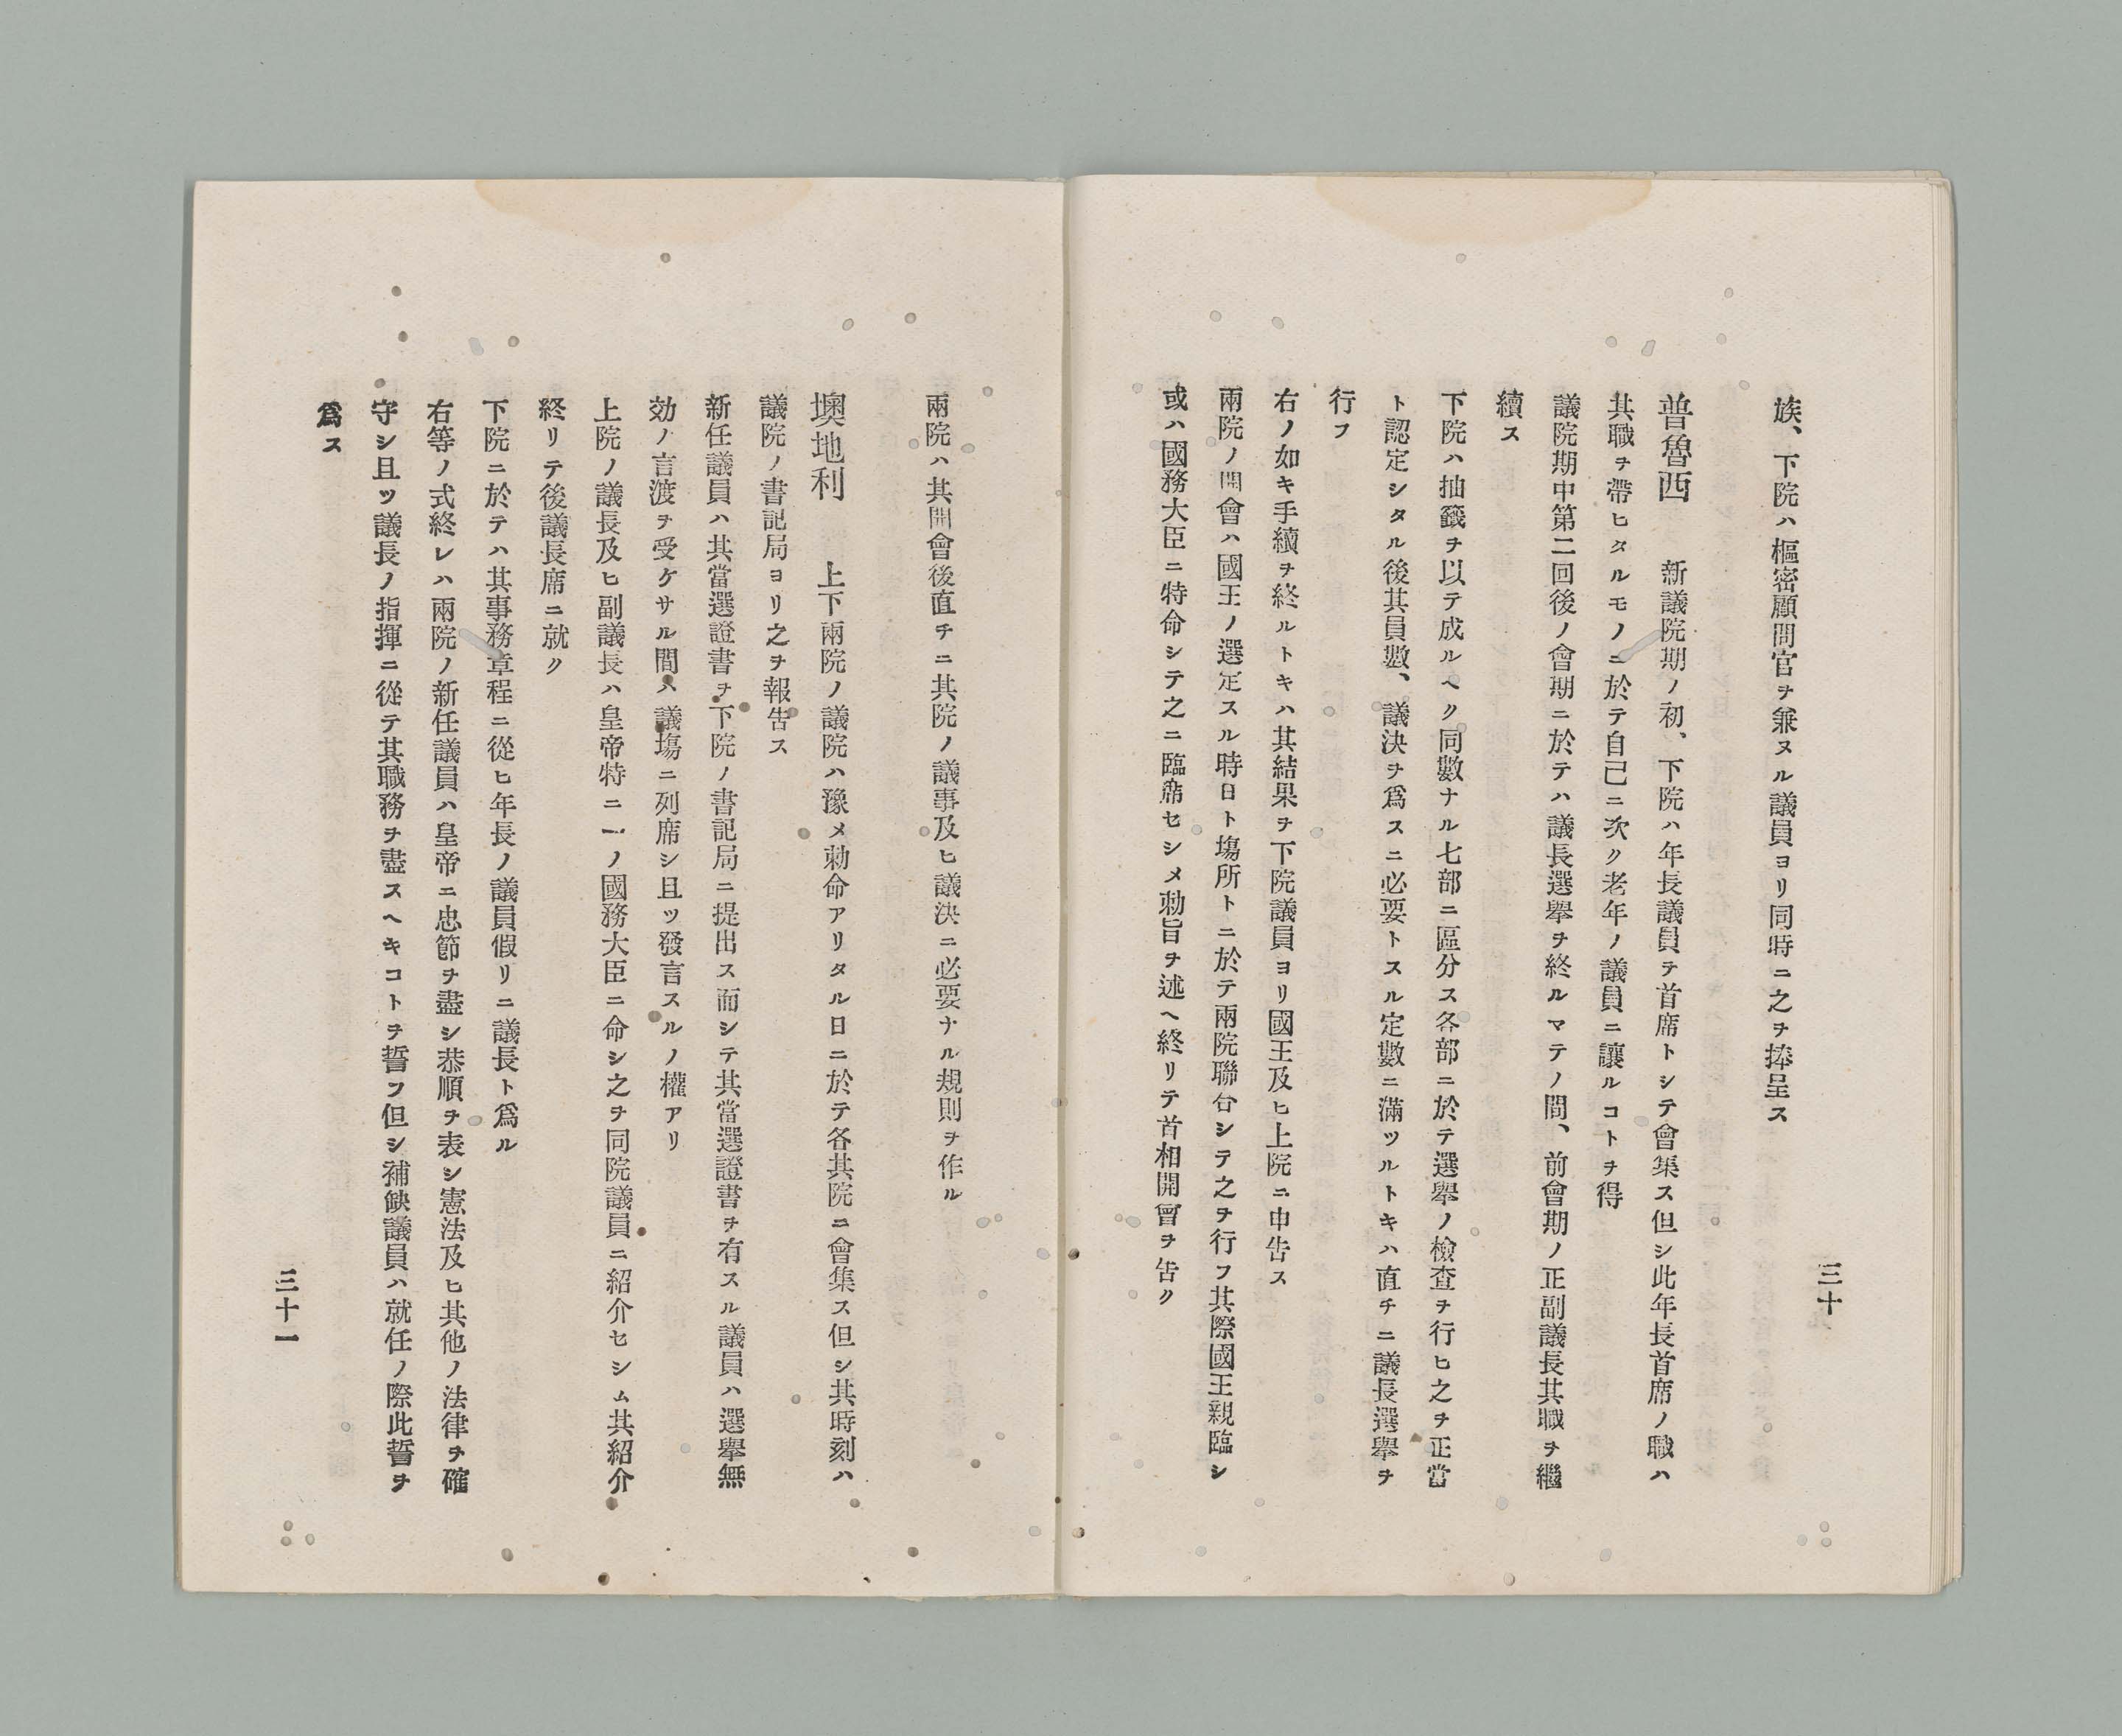 族、下院ハ樞密顧問官ヲ兼ヌル議員ヨリ同時ニ之ヲ捧呈ス
普魯西 新議院期ノ初、下院ハ年長議員ヲ首席トシテ會集ス但シ此年長首席ノ職ハ
其職ヲ帶ヒタルモノニ於テ自己ニ次ク老年ノ議員ニ讓ルコトヲ得
議院期中第二回後ノ會期ニ於テハ議長選擧ヲ終ルマテノ間、前會期ノ正副議長其職ヲ繼
續ス
下院ハ抽籤ヲ以テ成ルヘク同數ナル七部ニ區分ス各部ニ於テ選擧ノ檢査ヲ行ヒ之ヲ正當
ト認定シタル後其員數、議決ヲ爲スニ必要トスル定數ニ滿ツルトキハ直チニ議長選擧ヲ
行フ
右ノ如キ手續ヲ終ルトキハ其結果ヲ下院議員ヨリ國王及ヒ上院ニ申告ス
兩院ノ開會ハ國王ノ選定スル時日ト塲所トニ於テ兩院聯合シテ之ヲ行フ其際國王親臨シ
或ハ國務大臣ニ特命シテ之ニ臨席セシメ勅旨ヲ述ヘ終リテ首相開會ヲ告ク
三十
兩院ハ其開會後直チニ其院ノ議事及ヒ議決ニ必要ナル規則ヲ作ル
墺地利 上下兩院ノ議院ハ豫メ勅命アリタル日ニ於テ各其院ニ會集ス但シ其時刻ハ
議院ノ書記局ヨリ之ヲ報告ス
新任議員ハ其當選證書ヲ下院ノ書記局ニ提出ス而シテ其當選證書ヲ有スル議員ハ選擧無
効ノ言渡ヲ受ケサル間ハ議塲ニ列席シ且ツ發言スルノ權アリ
上院ノ議長及ヒ副議長ハ皇帝特ニ一ノ國務大臣ニ命シ之ヲ同院議員ニ紹介セシム其紹介
終リテ後議長席ニ就ク
下院ニ於テハ其事務章程ニ從ヒ年長ノ議員假リニ議長ト爲ル
右等ノ式終レハ兩院ノ新任議員ハ皇帝ニ忠節ヲ盡シ恭順ヲ表シ憲法及ヒ其他ノ法律ヲ確
守シ且ツ議長ノ指揮ニ從テ其職務ヲ盡スヘキコトヲ誓フ但シ補缺議員ハ就任ノ際此誓ヲ
爲ス
三十一